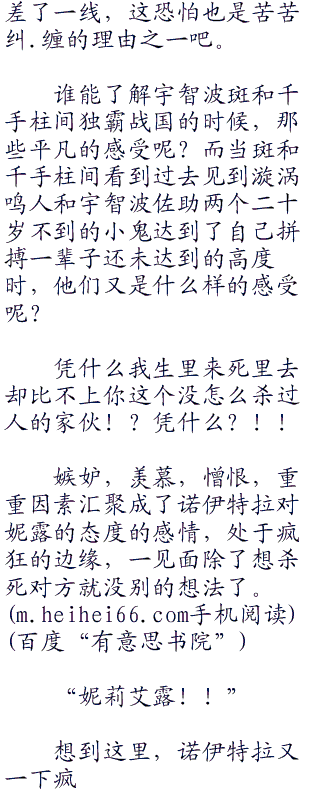 差了一线，这恐怕也是苦苦
纠.缠的理由之一吧。
谁能了解宇智波斑和千
手柱间独霸战国的时候，那
些平凡的感受呢？而当斑和
千手柱间看到过去见到漩涡
鸣人和宇智波佐助两个二十
岁不到的小鬼达到了自己拼
搏一辈子还未达到的高度
时，他们又是什么样的感受
呢？
凭什么我生里来死里去
却比不上你这个没怎么杀过
人的家伙！？凭什么？！！
嫉妒，羡慕，憎恨，重
重因素汇聚成了诺伊特拉对
妮露的态度的感情，处于疯
狂的边缘，一见面除了想杀
死对方就没别的想法了。
(m.heihei66.com手机阅读)
(百度“有意思书院”)
“妮莉艾露！！”
想到这里，诺伊特拉又
一下疯